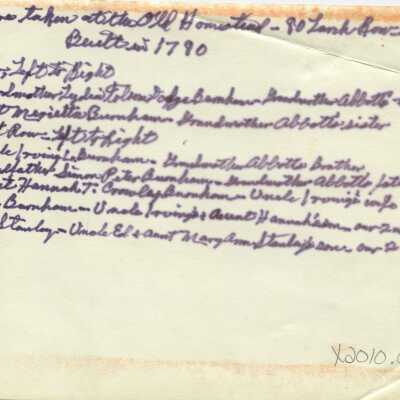 taken at the Old Homestead - 80 Lark Row -
Built in 1790
Left to Right
Grandmother Lydia Dodge Burnham - Grandmother Abbott's
Marietta Burnham - Grandmother Abbott's sister
Row - Left to Right
Irving L. Burnham - Grandmother Abbotts Brother
Simon Peter Burnham - Grandmother Abbotts
Hannah T. Crowley Burnham - Uncle Irving's wife
Burnham - Uncle Irving's & Aunt Hannah's son - our 2
Stanley - Uncle Ed & Aunt Mary Ann Stanley's son our 2
X2010.